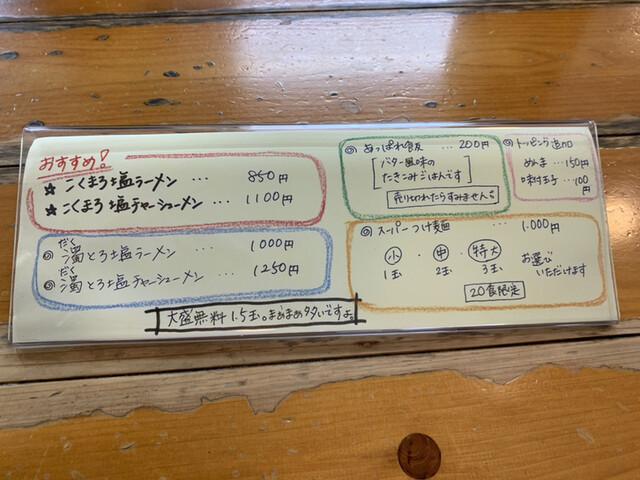 おすすめ!
☆ こくまろ塩ラーメン ... 850円
☆ こくまろ塩チャーシューメン ... 1100円
だく
◎ 濁とろ塩ラーメン ... 1000円
だく
◎ 濁とろ塩チャーシューメン 1250円
大盛無料 1.5玉。まぁまぁ多いですよ。
◎ あっぱれ飯 ... 200円
バター風味の
たきこみごはんです
売り切れたらすみません。
◎ トッピング追加
めんま ... 150円
味付玉子 ... 100円
◎ スーパーつけ麺 ... 1.000円
小 ・ 中 ・ 特大 お選び
1玉 2玉 3玉 いただけます
20食限定